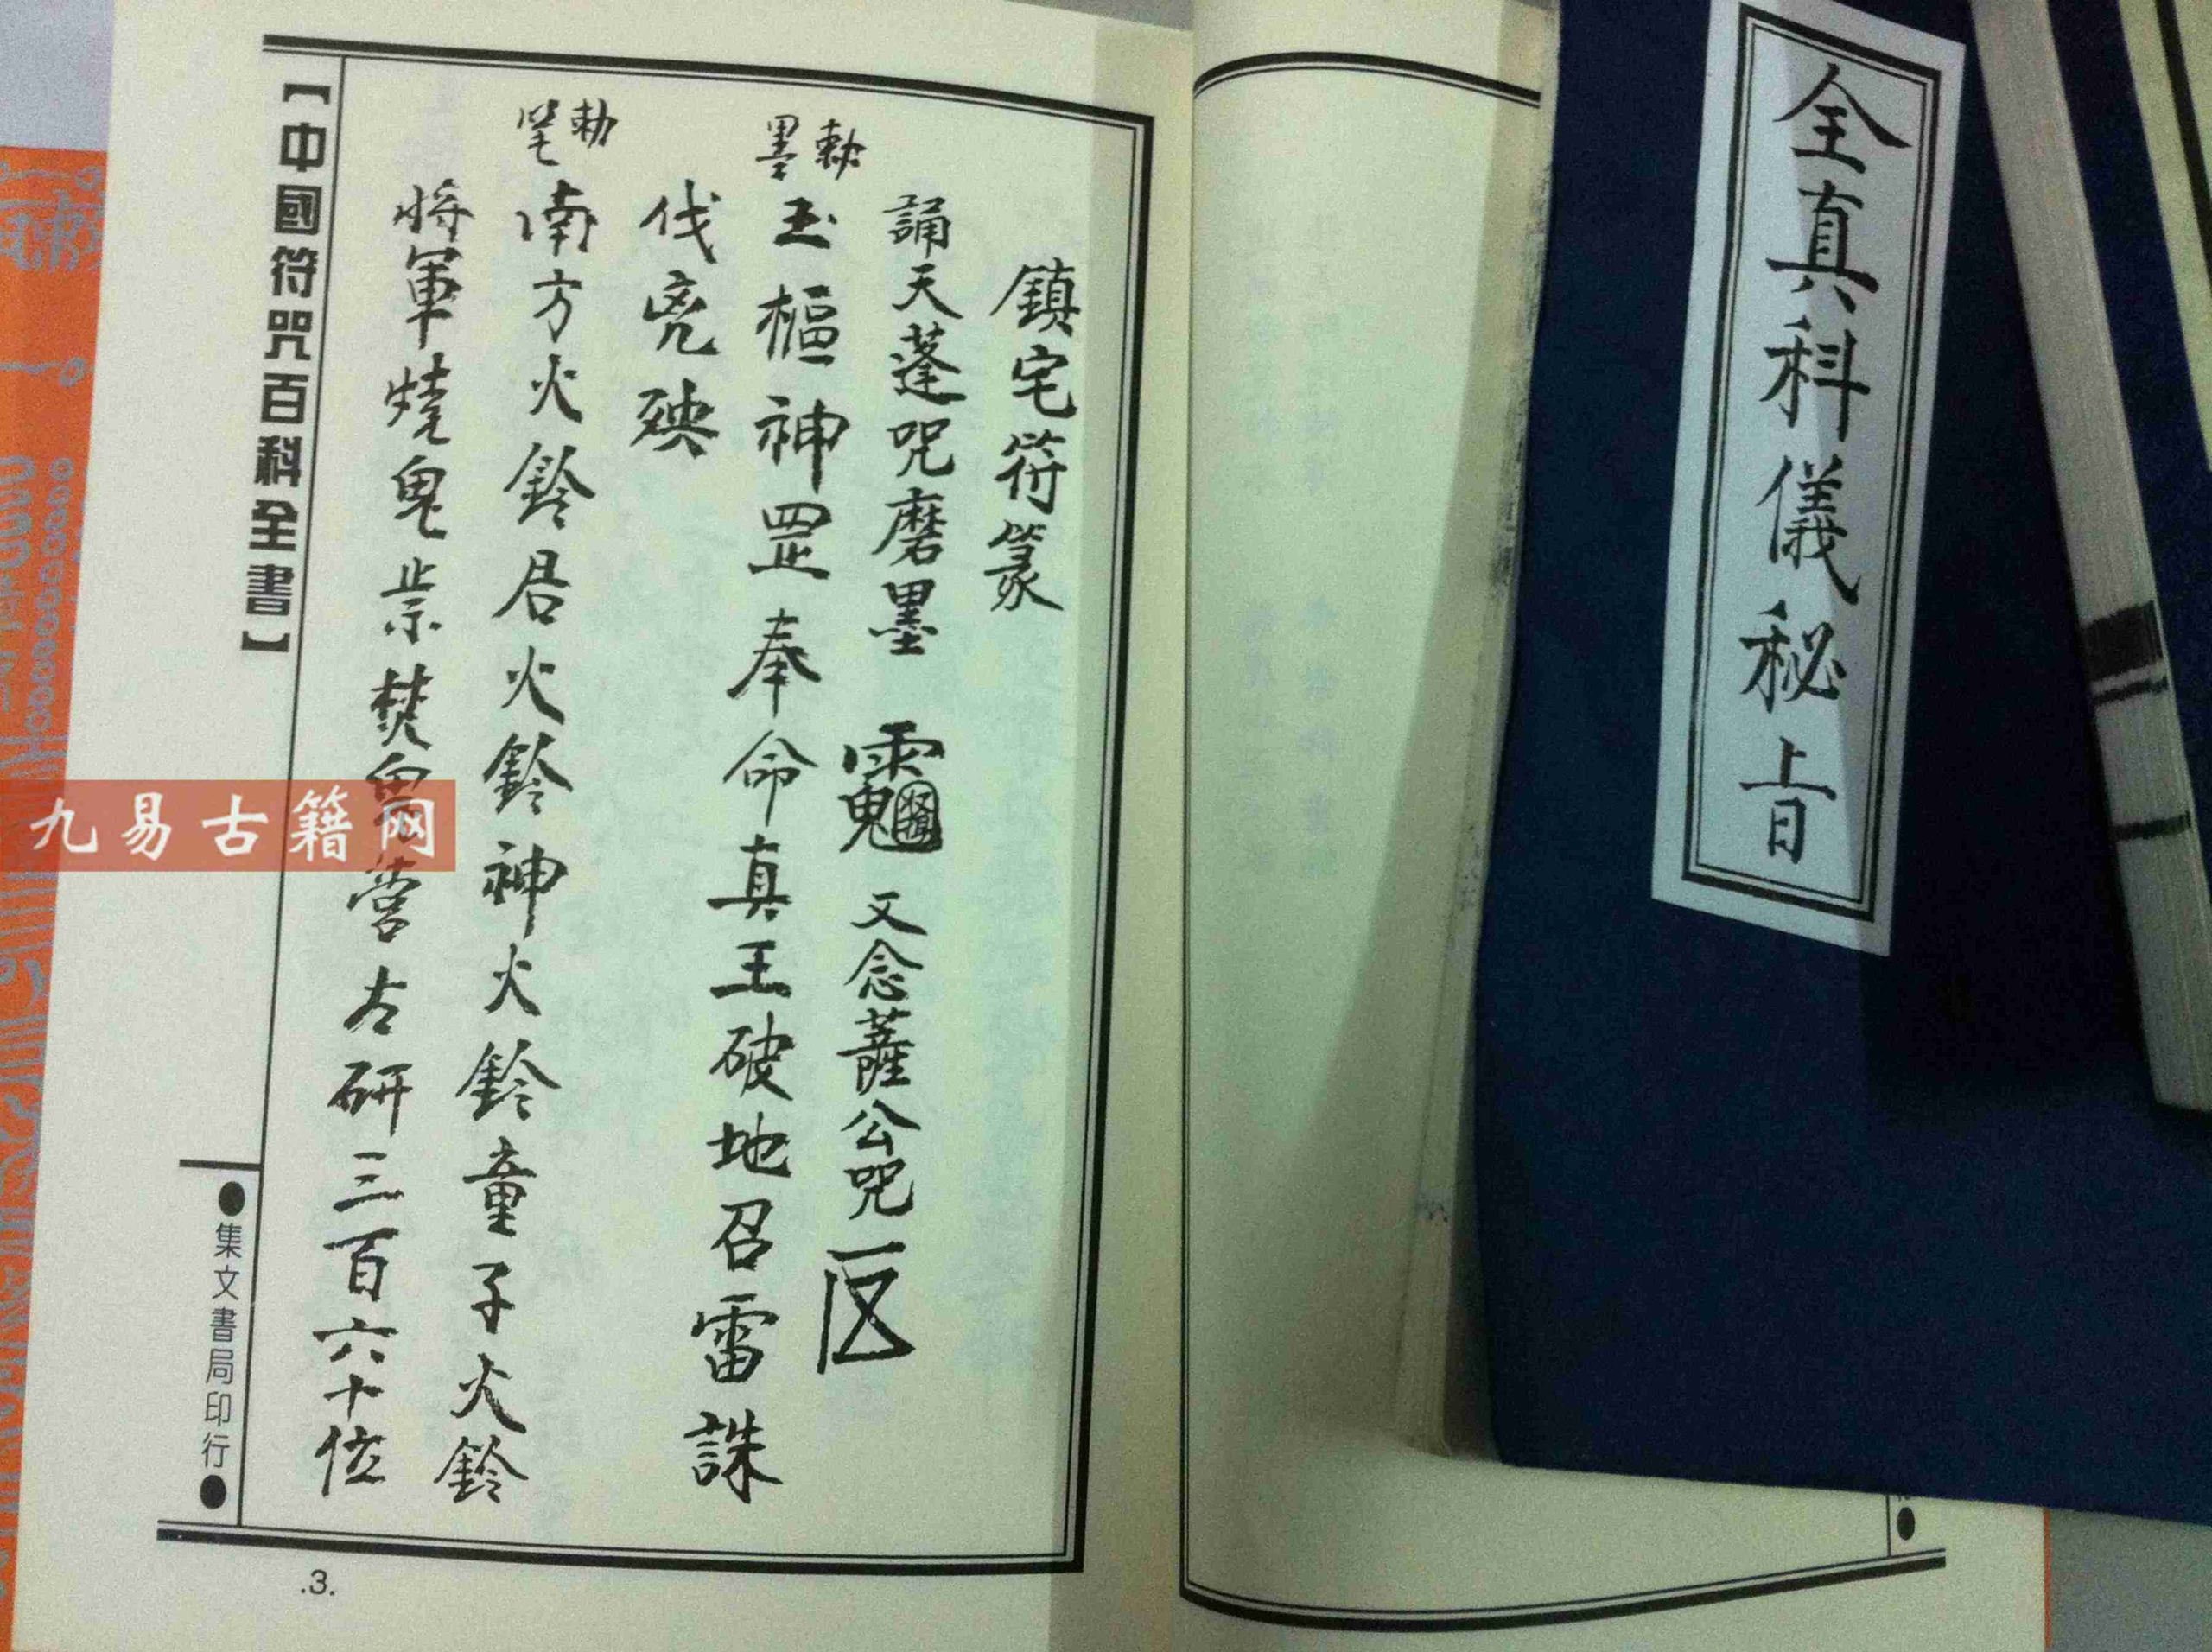 鎮宅符篆
誦天蓬咒磨墨
又念薩公咒
敕墨
玉樞神罡奉命真王破地召雷誅
伐兇殃
勅笔
南方火鈴居火鈴神火鈴童子火鈴
將軍燒鬼祟焚鬼營古研三百六十位
【中國符咒百科全書】
●集文書局印行●
.3.
全真科儀秘旨
九易古籍网